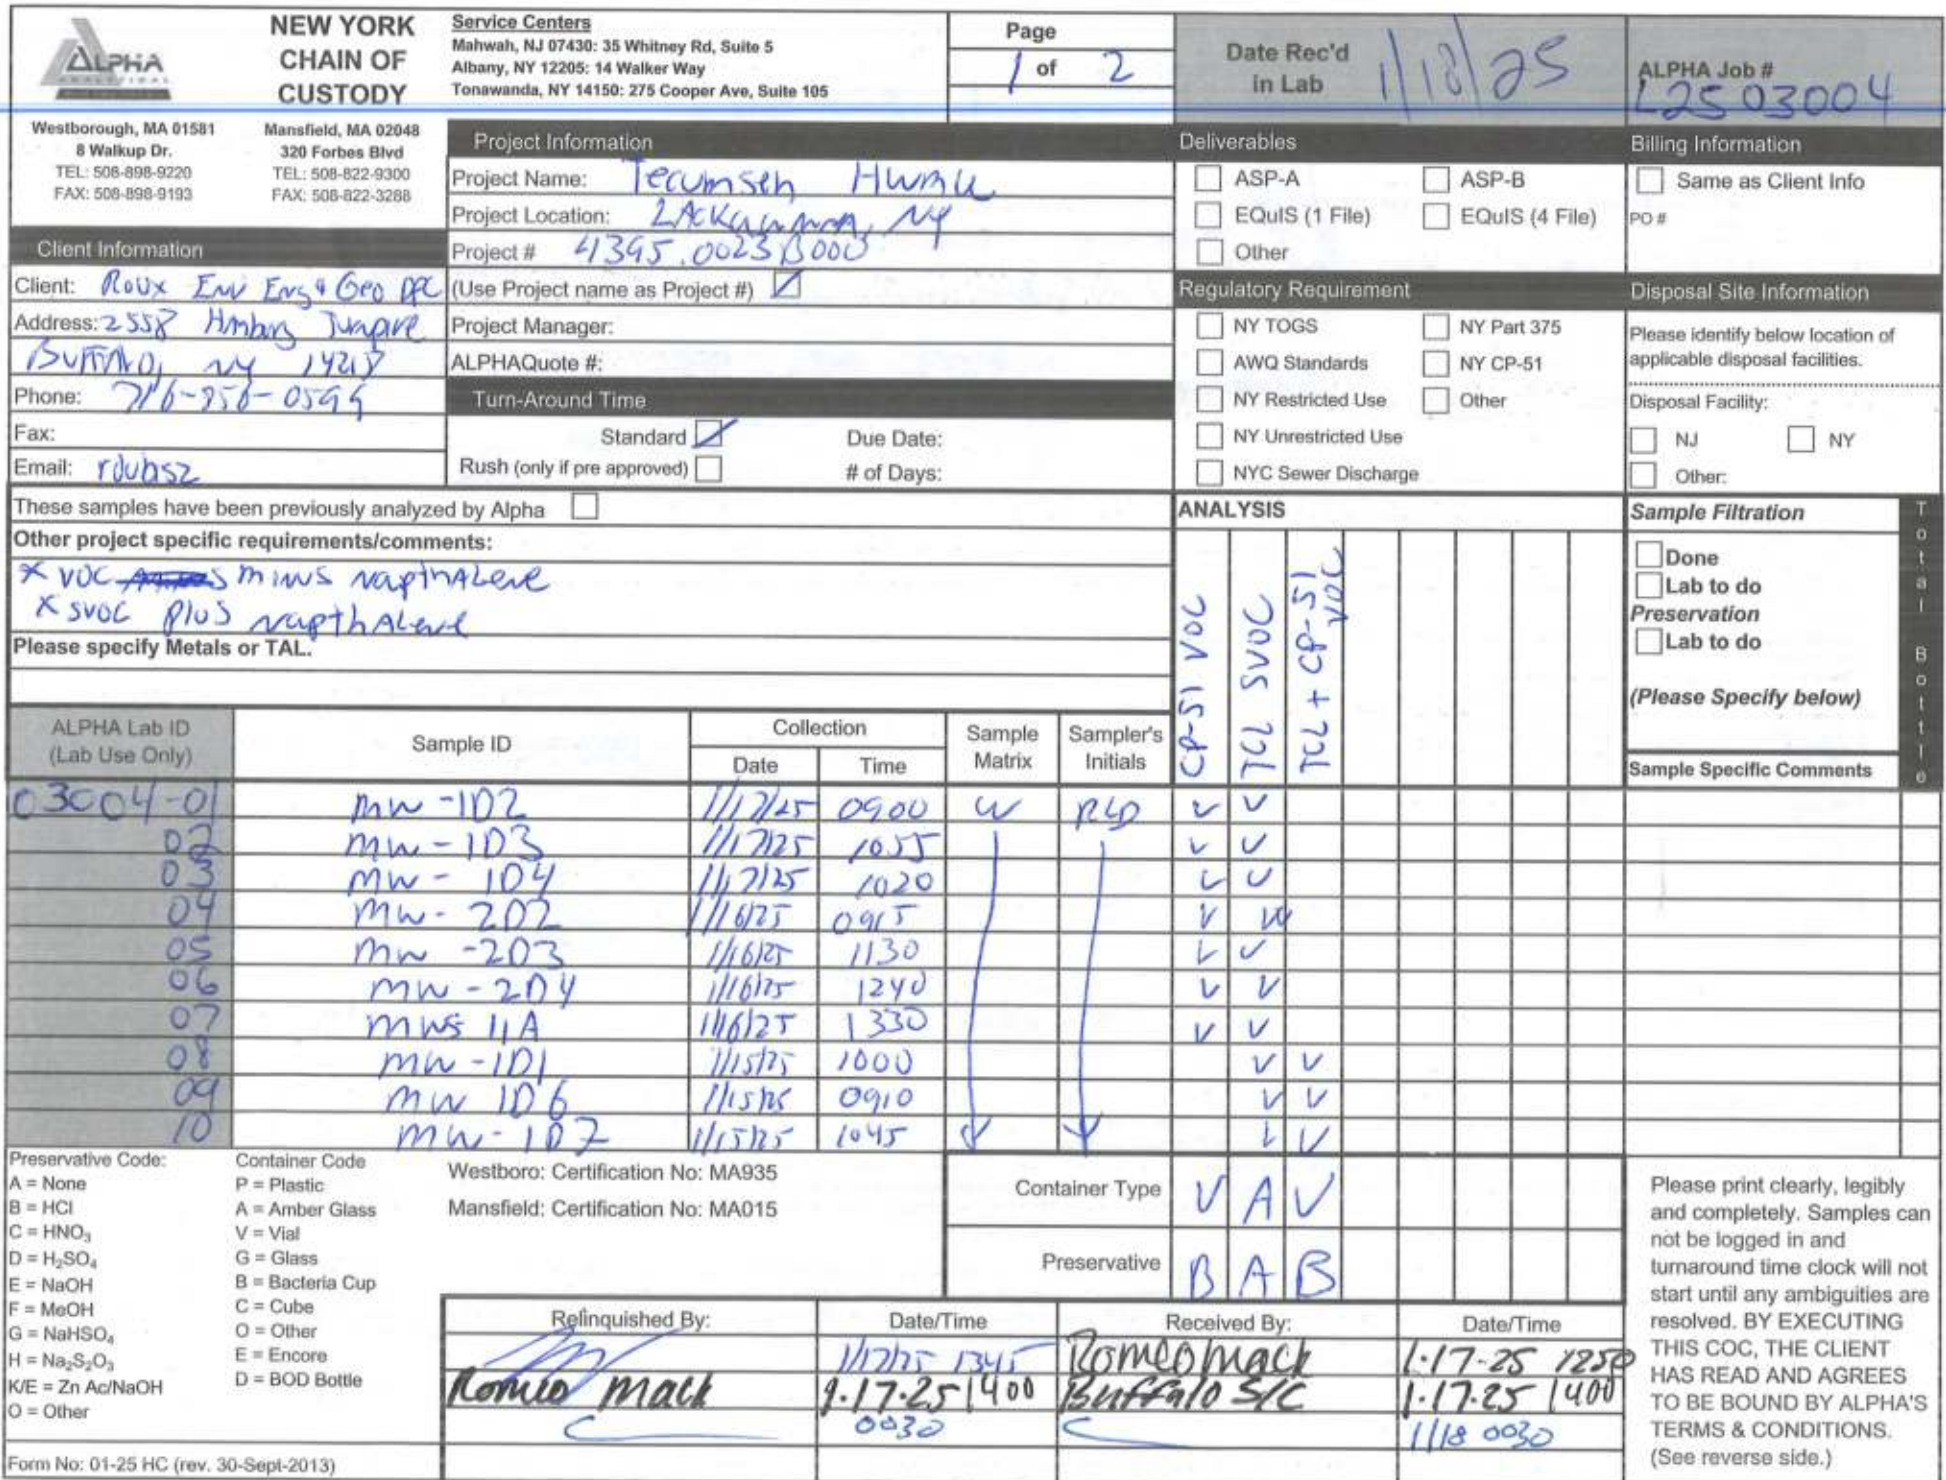 ALPHA
ANALYTICAL
NEW YORK
CHAIN OF
CUSTODY
Service Centers
Mahwah, NJ 07430: 35 Whitney Rd, Suite 5
Albany, NY 12205: 14 Walker Way
Tonawanda, NY 14150: 275 Cooper Ave, Suite 105
Page
1 of 2
Date Rec'd
in Lab
1/18/25
ALPHA Job #
L2503004
Westborough, MA 01581
8 Walkup Dr.
TEL: 508-898-9220
FAX: 508-898-9193
Mansfield, MA 02048
320 Forbes Blvd
TEL: 508-822-9300
FAX: 508-822-3288
Project Information
Project Name: Tecumseh HWMU
Project Location: LACKAWANNA, NY
Project # 4395.0023B000
(Use Project name as Project #)
Project Manager:
ALPHAQuote #:
Client Information
Client: Roux Env Eng & Geo DPC
Address: 2558 Hmburg Turnpike
BUFFALO, NY 14218
Phone: 716-856-0599
Fax:
Email: rdubisz
Turn-Around Time
Standard
Due Date:
Rush (only if pre approved)
# of Days:
Deliverables
ASP-A
ASP-B
EQuIS (1 File)
EQuIS (4 File)
Other
Regulatory Requirement
NY TOGS
NY Part 375
AWQ Standards
NY CP-51
NY Restricted Use
Other
NY Unrestricted Use
NYC Sewer Discharge
Billing Information
Same as Client Info
PO #
Disposal Site Information
Please identify below location of
applicable disposal facilities.
Disposal Facility:
NJ
NY
Other:
These samples have been previously analyzed by Alpha
Other project specific requirements/comments:
* VOC minus napthAlene
* SVOC plus napthAlene
Please specify Metals or TAL.
ANALYSIS
CP-51 VOC
TCL SVOC
TCL + CP-51 VOC
Sample Filtration
Done
Lab to do
Preservation
Lab to do
(Please Specify below)
Sample Specific Comments
Total Bottle
ALPHA Lab ID
(Lab Use Only)
Sample ID
Collection
Date
Time
Sample
Matrix
Sampler's
Initials
03004-01 MW-1D2 1/17/25 0900 W RLD
02 MW-1D3 1/17/25 1055
03 MW-1D4 1/17/25 1020
04 MW-2D2 1/16/25 0915
05 MW-2D3 1/16/25 1130
06 MW-2D4 1/16/25 1240
07 MWS 11A 1/16/25 1330
08 MW-1D1 1/15/25 1000
09 MW 1D6 1/15/25 0910
10 MW-1D7 1/15/25 1045
Preservative Code:
A = None
B = HCl
C = HNO₃
D = H₂SO₄
E = NaOH
F = MeOH
G = NaHSO₄
H = Na₂S₂O₃
K/E = Zn Ac/NaOH
O = Other
Container Code
P = Plastic
A = Amber Glass
V = Vial
G = Glass
B = Bacteria Cup
C = Cube
O = Other
E = Encore
D = BOD Bottle
Westboro: Certification No: MA935
Mansfield: Certification No: MA015
Container Type V A V
Preservative B A B
Relinquished By:
Date/Time
Received By:
Date/Time
1/17/25 1345 Romeo Mack 1-17-25 1250
Romeo Mack 1.17.25 1400 Buffalo S/C 1.17.25 1400
0030 1/18 0030
Please print clearly, legibly
and completely. Samples can
not be logged in and
turnaround time clock will not
start until any ambiguities are
resolved. BY EXECUTING
THIS COC, THE CLIENT
HAS READ AND AGREES
TO BE BOUND BY ALPHA'S
TERMS & CONDITIONS.
(See reverse side.)
Form No: 01-25 HC (rev. 30-Sept-2013)